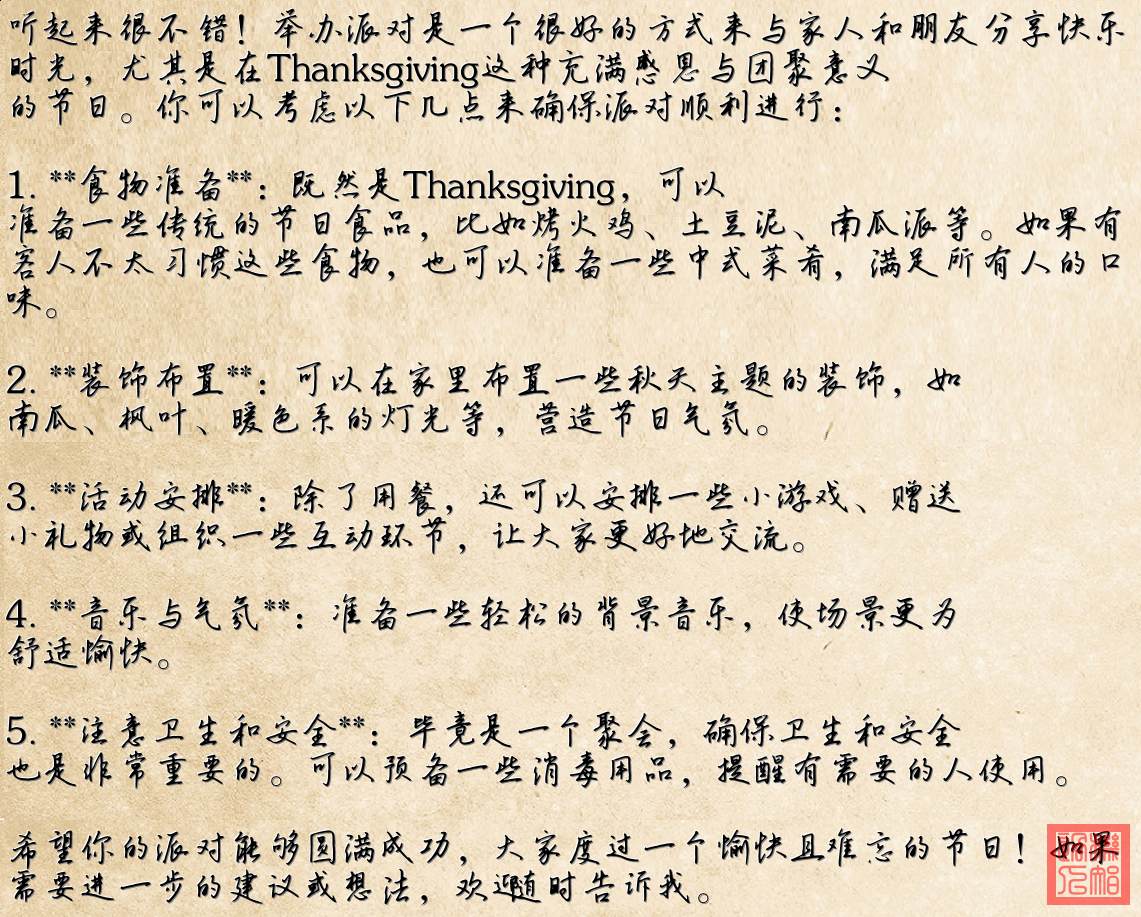 听起来很不错！举办派对是一个很好的方式来与家人和朋友分享快乐
时光，尤其是在Thanksgiving这种充满感恩与团聚意义
的节日。你可以考虑以下几点来确保派对顺利进行：
1. **食物准备**：既然是Thanksgiving，可以
准备一些传统的节日食品，比如烤火鸡、土豆泥、南瓜派等。如果有
客人不太习惯这些食物，也可以准备一些中式菜肴，满足所有人的口
味。
2. **装饰布置**：可以在家里布置一些秋天主题的装饰，如
南瓜、枫叶、暖色系的灯光等，营造节日气氛。
3. **活动安排**：除了用餐，还可以安排一些小游戏、赠送
小礼物或组织一些互动环节，让大家更好地交流。
4. **音乐与气氛**：准备一些轻松的背景音乐，使场景更为
舒适愉快。
5. **注意卫生和安全**：毕竟是一个聚会，确保卫生和安全
也是非常重要的。可以预备一些消毒用品，提醒有需要的人使用。
希望你的派对能够圆满成功，大家度过一个愉快且难忘的节日！如果
需要进一步的建议或想法，欢迎随时告诉我。